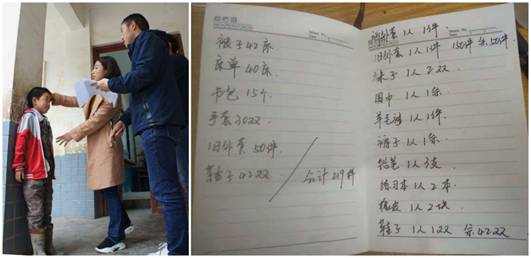 被子42床
床单40床
书包15个
手套30双
旧外套50件
鞋子42双
合计219件
棉外套1人1件
旧外套1人1件
袜子1人2双
围巾1人1条
羊毛裤1人1件
裤子1人1条
铅笔1人3支
练习本1人2本
橡皮1人2块
鞋子1人1双 余42双